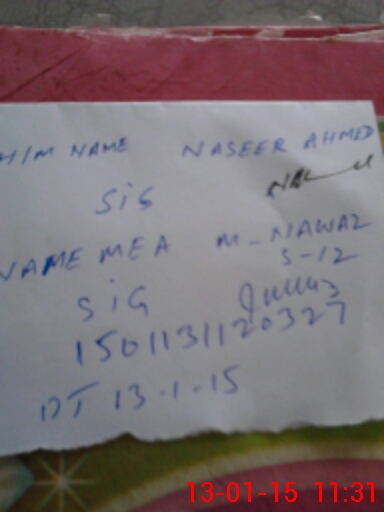 H/M NAME NASEER AHMED
SiG
NAME MEA M-NAWAZ
S-12
SiG
1501131120327
DT 13-1-15
13-01-15 11:31